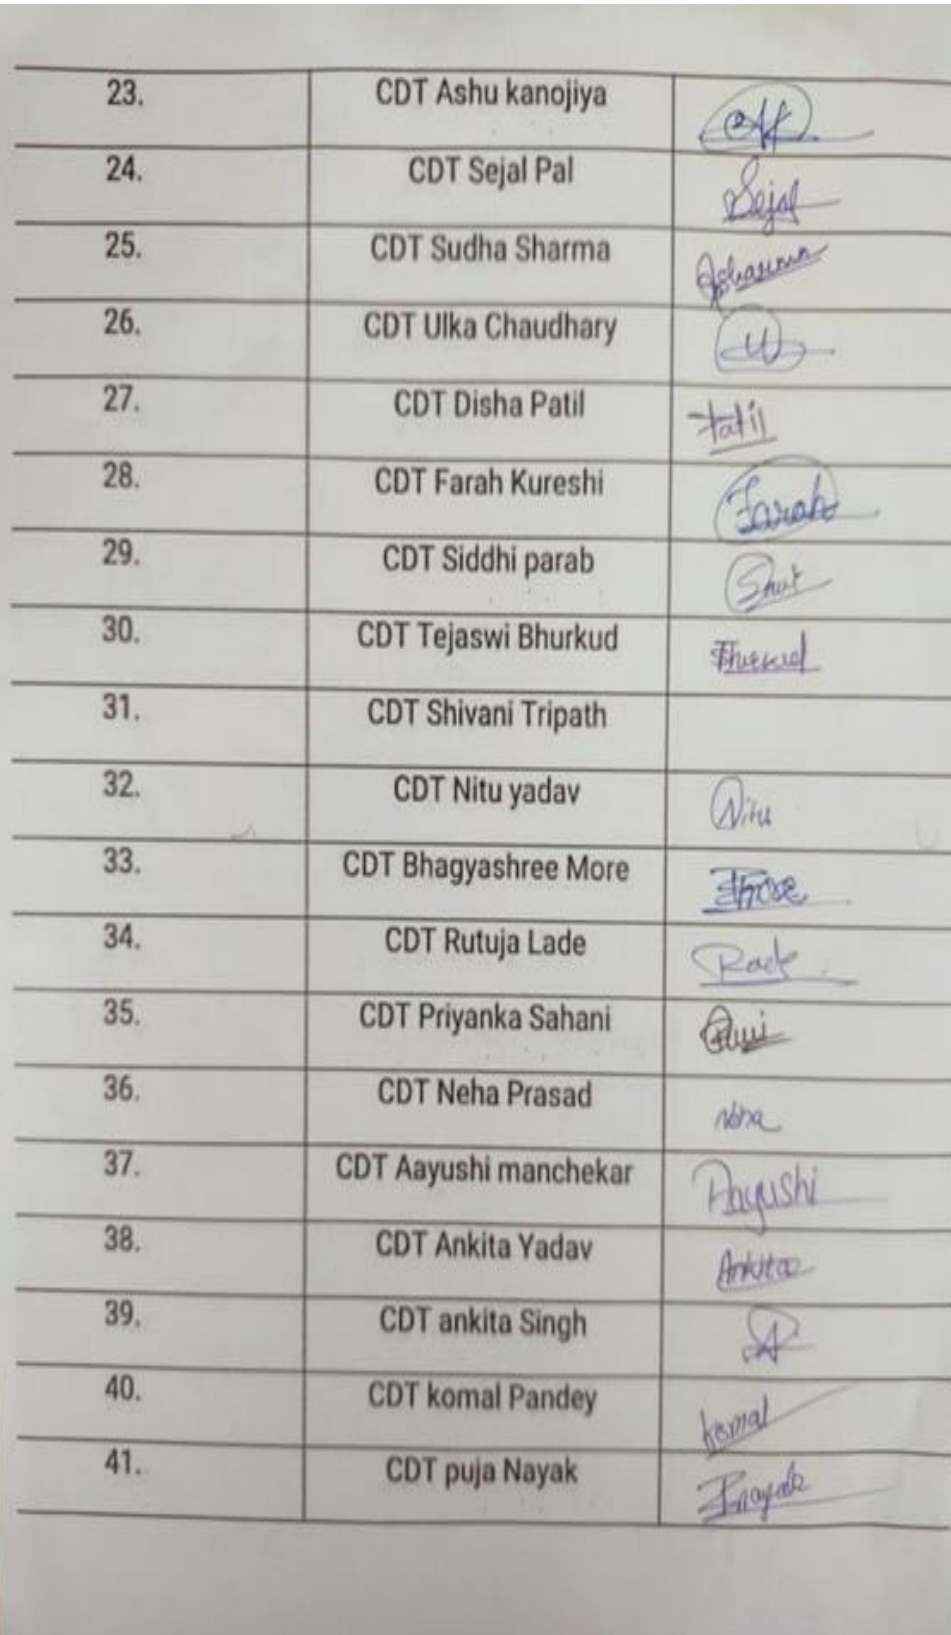 23. CDT Ashu kanojiya AK
24. CDT Sejal Pal Sejal
25. CDT Sudha Sharma Sharma
26. CDT Ulka Chaudhary U
27. CDT Disha Patil Patil
28. CDT Farah Kureshi Farah
29. CDT Siddhi parab
30. CDT Tejaswi Bhurkud Bhurkud
31. CDT Shivani Tripath
32. CDT Nitu yadav Nitu
33. CDT Bhagyashree More
34. CDT Rutuja Lade
35. CDT Priyanka Sahani
36. CDT Neha Prasad Neha
37. CDT Aayushi manchekar Aayushi
38. CDT Ankita Yadav Ankita
39. CDT ankita Singh
40. CDT komal Pandey komal
41. CDT puja Nayak Pnayak